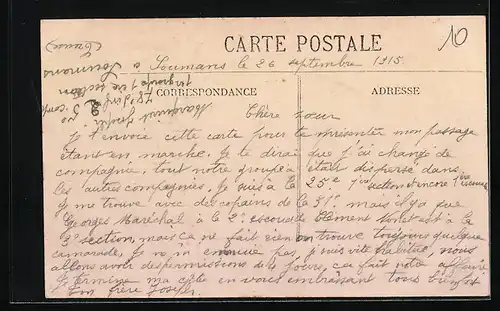 CARTE POSTALE
10
à Soumans le 26 septembre 1915
CORRESPONDANCE
ADRESSE
(Creuse)
Chère sœur
Je t'envoie cette carte pour te présenter mon passage
étant en marche. Je te dirai que j'ai changé de
compagnie, tout notre groupe a était dispersé dans
les autres compagnies, je suis à la 25e 1ère section encore
Je me trouve avec des copains de la 31e mais il y a que
Georges Maréchal à la 2e escouade Clément est à la
3e section, mais ça ne fait rien on trouve toujours quelque
camarade, je ne m'ennuie pas, j'suis vite habitué, nous
allons avoir des permissions de jours, ça fait note affaire
Je termine ma carte en vous embrassant tous bien fort
Ton frère Joseph